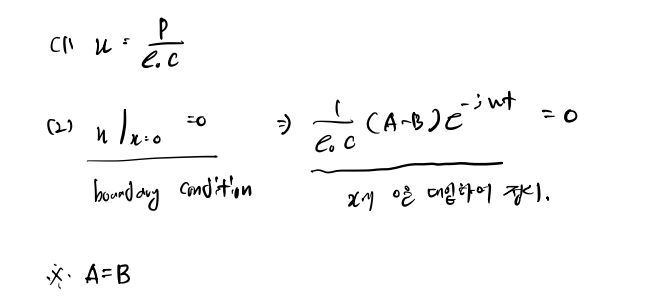 (1) u = P / ρ₀c
(2) u|x=0 = 0 ⇒ 1/ρ₀c (A-B)e^-jωt = 0
boundary condition
x에 0을 대입하여 정리.
※ A=B